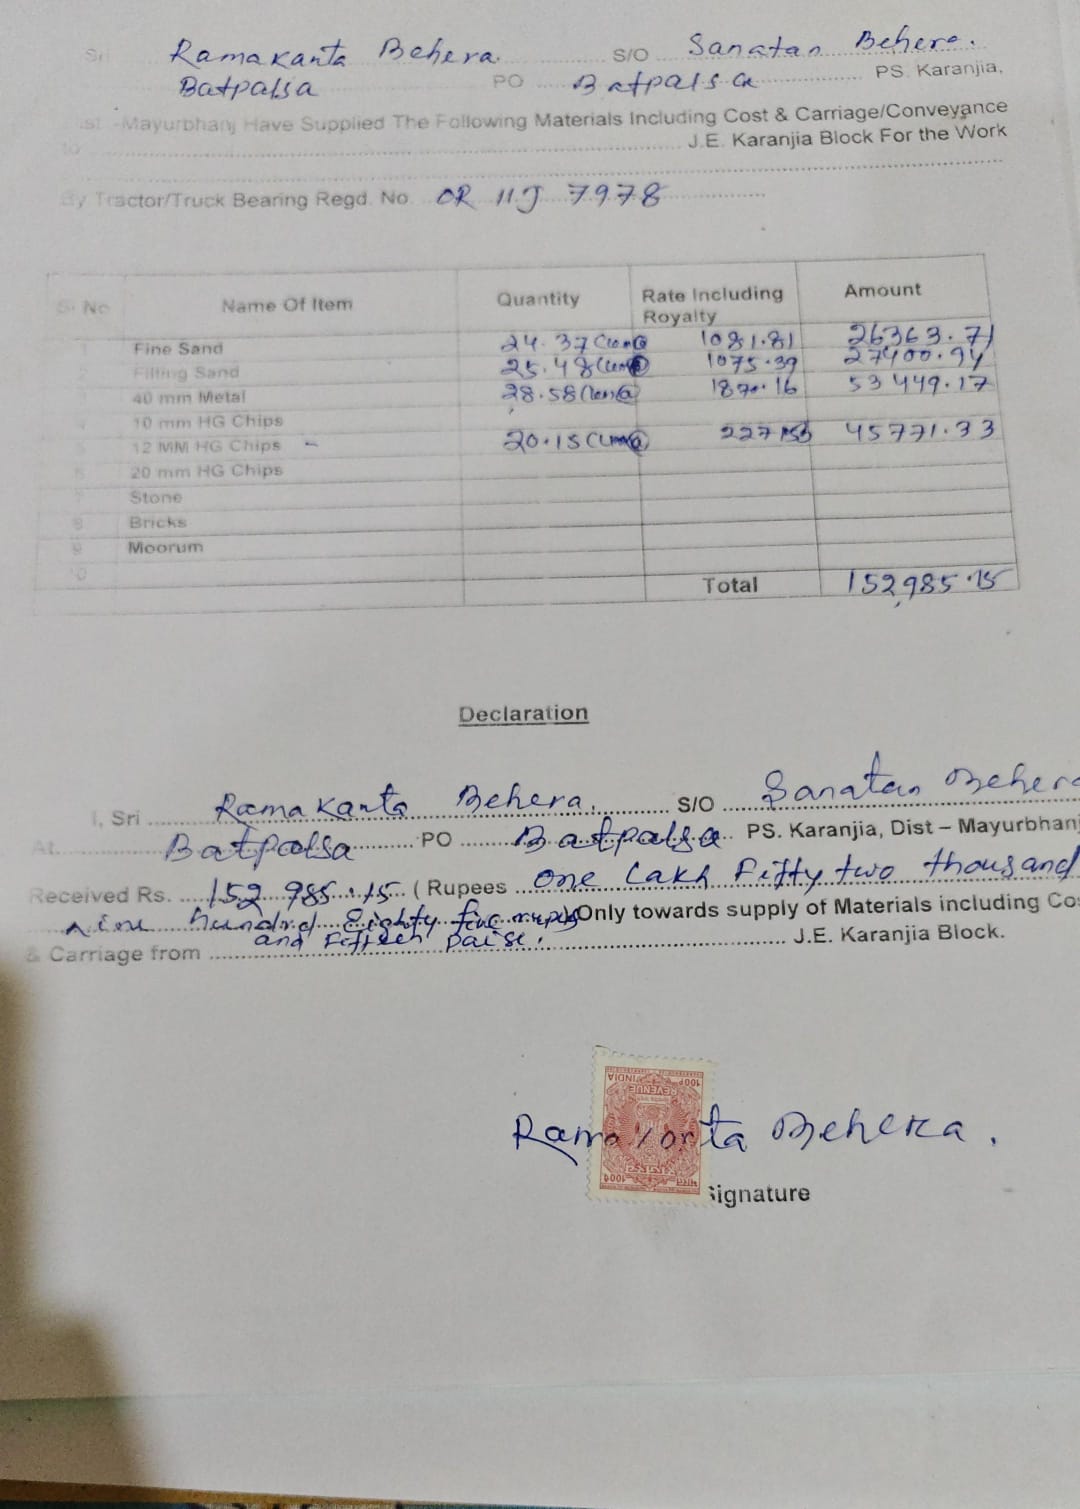 Sri Ramakanta Behera. S/O Sanatan Behera.
Batpalsa PO Batpalsa PS. Karanjia,
Dist -Mayurbhanj Have Supplied The Following Materials Including Cost & Carriage/Conveyance
to J.E. Karanjia Block For the Work
By Tractor/Truck Bearing Regd. No. OR 11 J 7978
Sl No Name Of Item Quantity Rate Including Royalty Amount
1 Fine Sand 24.37 Cum@ 1081.81 26363.71
Filling Sand 25.48 Cum@ 1075.39 27400.94
40 mm Metal 28.58 Cum@ 1870.16 53449.17
4 10 mm HG Chips
12 MM HG Chips - 20.15 Cum@ 45771.33
6 20 mm HG Chips
7 Stone
8 Bricks
9 Moorum
10
Total 152,985.15
Declaration
I, Sri Ramakanta Behera. S/O Sanatan Behera
At. Batpalsa PO Batpalsa PS. Karanjia, Dist – Mayurbhanj
Received Rs. 152 985.15 ( Rupees One Lakh Fifty two thousand
nine hundred Eighty five rupees) Only towards supply of Materials including Cos
and Fifteen paise.
& Carriage from J.E. Karanjia Block.
INDIA 100P
REVENUE
भारत 100P
Ramakanta Behera.
Signature